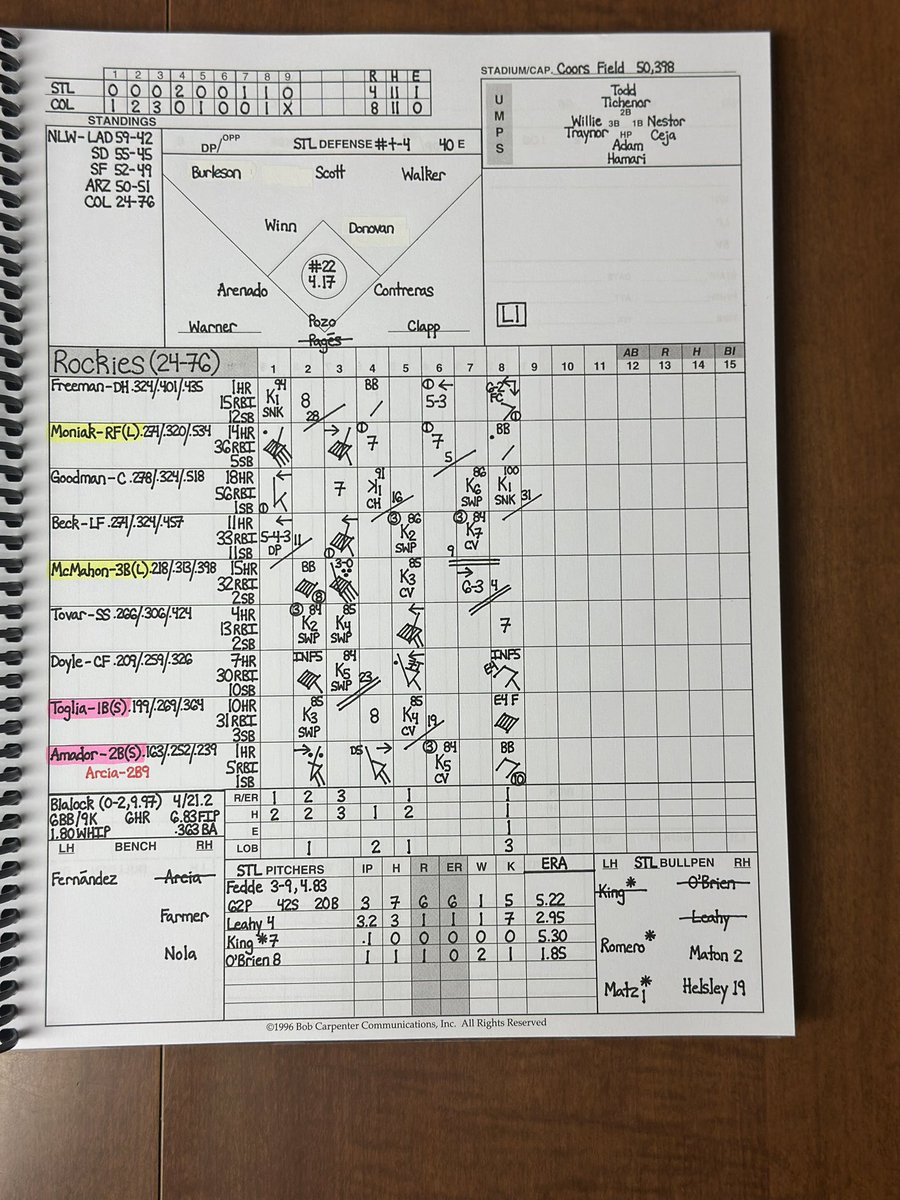 STADIUM/CAP. Coors Field 50,398
1 2 3 4 5 6 7 8 9 R H E
STL 0 0 0 2 0 0 1 1 0 4 11 1
COL 1 2 3 0 1 0 0 1 X 8 11 0
STANDINGS
NLW-LAD 59-42
SD 55-45
SF 52-49
ARZ 50-51
COL 24-76
DP/OPP STL DEFENSE #+-4 40 E
Burleson Scott Walker
Winn Donovan
#22
4.17
Arenado Contreras
Warner Pozo Clapp
Pagés
UMPS
Todd
Tichenor
2B
Willie 3B 1B Nestor
Traynor HP Ceja
Adam
Hamari
L1
Rockies (24-76) 1 2 3 4 5 6 7 8 9 10 11 12 13 14 15
AB R H BI
Freeman-DH .324/.401/.435 1HR 15RBI 12SB
94 K1 SNK
8 28
BB
1 5-3
G-2 FC 1
Moniak-RF(L) .271/.320/.534 14HR 36RBI 5SB
1 7
1 7 5
BB
Goodman-C .278/.324/.518 18HR 56RBI 1SB
1 K
7
91 K1 CH 16
86 K6 SWP
100 K1 SNK 31
Beck-LF .271/.324/.457 11HR 33RBI 11SB
5-4-3 DP 11
1
3 86 K2 SWP
3 84 K7 CV 9
McMahon-3B(L) .218/.313/.398 15HR 32RBI 2SB
BB 8
3-0
85 K3 CV
G-3 4
Tovar-SS .266/.306/.424 4HR 13RBI 2SB
3 84 K2 SWP
85 K4 SWP
7
Doyle-CF .209/.259/.326 7HR 30RBI 10SB
INF5
84 K5 SWP 23
INF5 E4
Toglia-1B(S) .199/.269/.364 10HR 31RBI 3SB
85 K3 SWP
8
85 K4 CV 19
E4 F
Amador-2B(S) .163/.252/.239 1HR 5RBI 1SB
Arcia-2B9
D5
3 84 K5 CV
BB 10
Blalock (0-2, 9.97) 4/21.2
6BB/9K 6HR 6.83FIP
1.80 WHIP .363BA
R/ER 1 2 3 1 1
H 2 2 3 1 2 1
E 1
LOB 1 2 1 3
LH BENCH RH
Fernández Arcia
Farmer
Nola
STL PITCHERS IP H R ER W K ERA
Fedde 3-9, 4.83
62P 42S 20B 3 7 6 6 1 5 5.22
Leahy 4 3.2 3 1 1 1 7 2.95
King *7 .1 0 0 0 0 0 5.30
O'Brien 8 1 1 1 0 2 1 1.85
LH STL BULLPEN RH
King* O'Brien
Leahy
Romero* Maton 2
Matz* 1 Helsley 19
©1996 Bob Carpenter Communications, Inc. All Rights Reserved